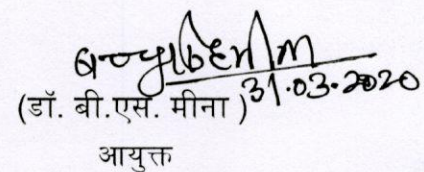 31.03.2020
(डॉ. बी.एस. मीना)
आयुक्त